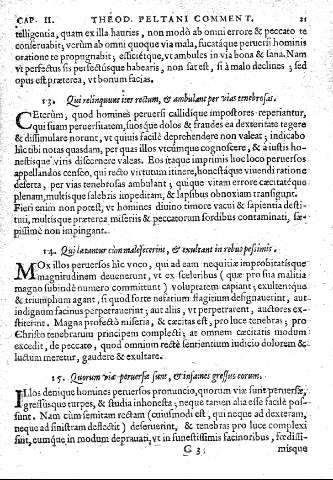 CAP. II. THEOD. PELTANI COMMENT. 21
telligentia, quam ex illa hauries, non modò ab omni errore & peccato te
conseruabit; verùm ab omni quoque via mala, fucatáque peruersi hominis
oratione te propugnabit; efficiétque, vt ambules in via bona & sana. Nam
vt perfectus sis perfectúsque habearis, non sat est, si à malo declines; sed
opus est præterea, vt bonum facias.
13. Qui relinquunt iter rectum, & ambulant per vias tenebrosas.
CEterùm, quod homines peruersi callidique impostores reperiantur,
qui suam peruersitatem, suósque dolos & fraudes ea dexteritate tegere
& dissimulare norunt, vt quiuis facilè deprehendere non valeat; indicabo
hîc tibi notas quasdam, per quas illos vtcumque cognoscere, & à iustis ho-
nestísque viris discernere valeas. Eos itaque imprimis hoc loco peruersos
appellandos censeo, qui recto virtutum itinere, honestáque viuendi ratione
deserta, per vias tenebrosas ambulant; quique vitam errore cæcitatéque
plenam, multísque salebris impeditam, & lapsibus obnoxiam transigunt.
Fieri enim non potest, vt homines diuino timore vacui & sapientia desti-
tuti, multísque præterea miseriis & peccatorum sordibus contaminati, sæ-
pissimè non impingant.
14. Qui lætantur cùm malefecerint, & exultant in rebus pessimis.
MOx illos peruersos hîc voco, qui ad eam nequitiæ improbitatísque
magnitudinem deuenerunt, vt ex sceleribus (quæ pro sua malitia
magno subinde numero committunt) voluptatem capiant; exultentque
& triumphum agant, si quod forte nefarium flagitium designauerint, aut
indignum facinus perpetrauerint; aut aliis, vt perpetrarent, auctores ex-
stiterint. Magna profectò miseria, & cæcitas est; pro luce tenebras; pro
Christo tenebrarum principem complecti; at omnem cæcitatis modum
excedit, de peccato, quod omnium rectè sentientium iudicio dolorem &
luctum meretur, gaudere & exultare.
15. Quorum viæ peruersæ sunt, & infames gressus eorum.
ILlos denique homines peruersos pronuncio, quorum viæ sunt peruersæ,
gressúsque turpes, & studia inhonesta; neque tamen alia esse facilè pos-
sunt. Nam cùm semitam rectam (cuiusmodi est, qui neque ad dexteram,
neque ad sinistram deflectit) deseruerint, & tenebras pro luce complexi
sint, eumque in modum deprauati, vt in funestissimis facinoribus, fœdissi-
C 3 misque